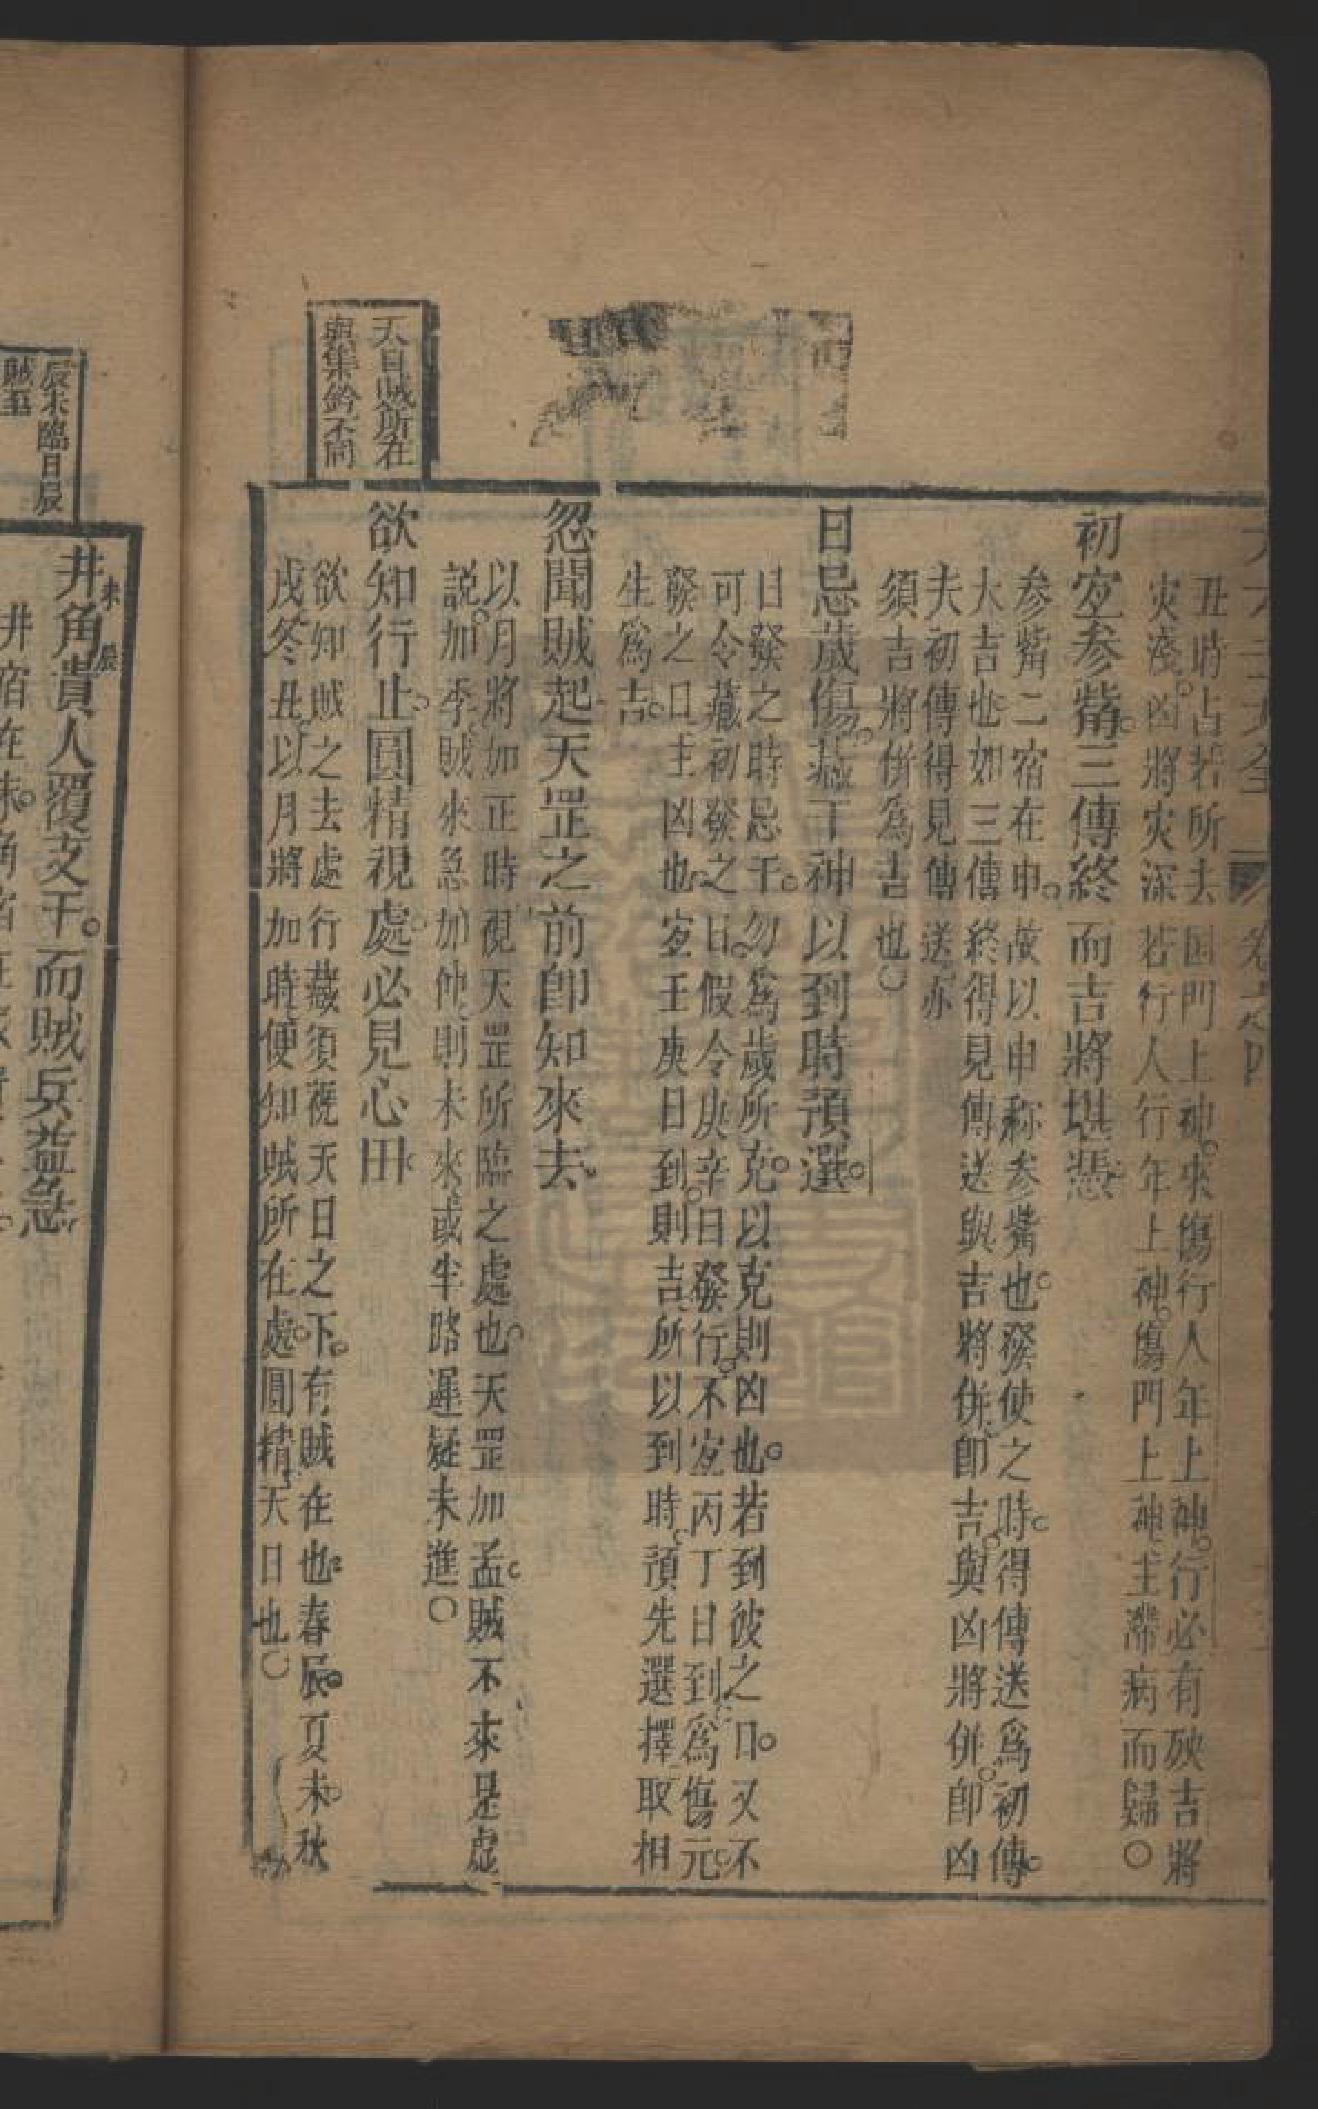 丑時占若所去国門上神來傷行人年上神行必有殃吉將
灾淺凶將灾深若行人行年上神傷門上神主滯病而歸〇
初宐参觜三傳終而吉將堪憑
参觜二宿在申故以申称参觜也發使之時得傳送爲初傳
大吉也如三傳終得見傳送與吉將併即吉與凶將併即凶
夫初傳得見傳送亦
須吉將併爲吉也〇
日忌歲傷藏干神以到時預選
日發之時忌干勿爲歲所克以克則凶也若到彼之日又不
可令藏初發之日假令庚辛日發行不宐丙丁日到爲傷元
發之日主凶也宐壬庚日到則吉所以到時預先選擇取相
生爲吉
忽聞賊起天罡之前卽知來去
以月將加正時視天罡所臨之處也天罡加孟賊不來是虛
説加季賊來急加仲則未來或半路遲疑未進〇
欲知行止圓精視處必見心田
欲知賊之去處行藏須視天日之下有賊在也春辰夏未秋
戌冬丑以月將加時便知賊所在處圓精天日也〇
天目賊所在
與集鈐不同
辰未臨日辰
賊至
井角貴人覆支干而賊兵益急
未 辰